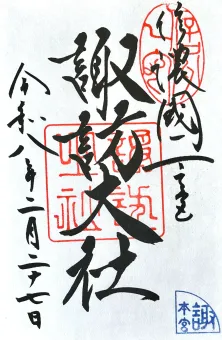 信濃國一之宮
諏訪大社
諏訪大社
令和八年二月二十七日
諏
本宮